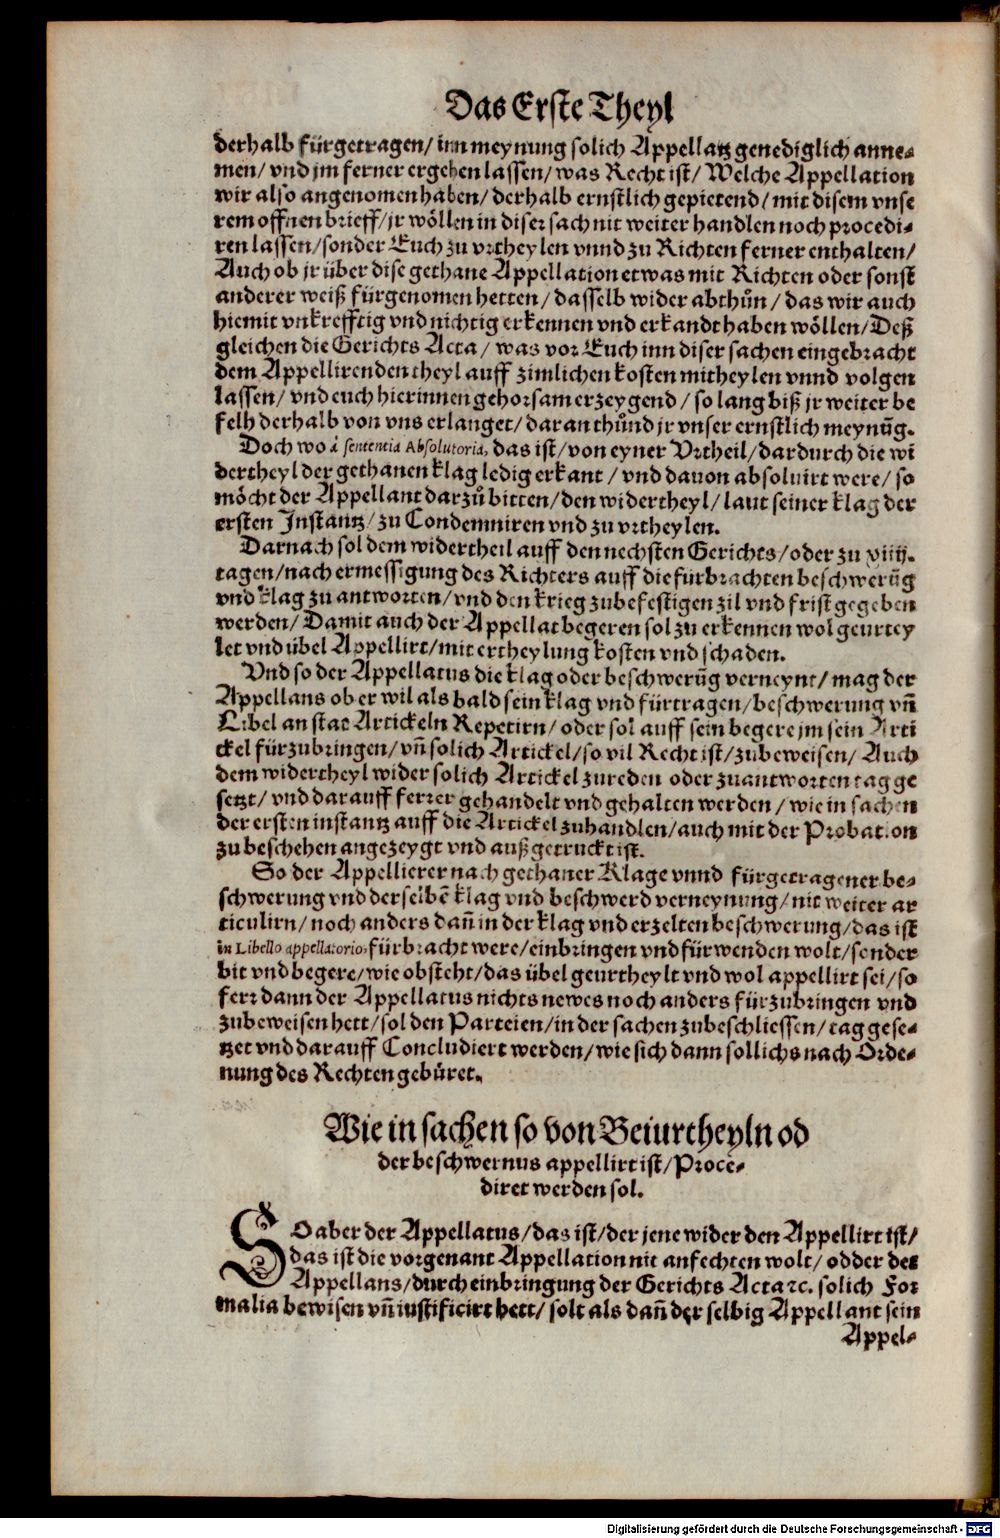 Das Erste Theyl
derhalb fürgetragen/ inn meynung solich Appellatz genediglich anne-
men/ vnd jm ferner ergehen lassen/ was Recht ist/ Welche Appellation
wir also angenomen haben/ derhalb ernstlich gepietend/ mit disem vnse
rem offnen brieff/ jr wöllen in diser sach nit weiter handlen noch procedi-
ren lassen/ sonder Euch zu vrtheylen vnnd zu Richten ferner enthalten/
Auch ob jr über dise gethane Appellation etwas mit Richten oder sonst
anderer weiß fürgenomen hetten/ dasselb wider abthůn/ das wir auch
hiemit vnkrefftig vnd nichtig erkennen vnd erkandt haben wöllen/ Deß
gleichen die Gerichts Acta/ was vor Euch inn diser sachen eingebracht
dem Appellirenden theyl auff zimlichen kosten mitheylen vnnd volgen
lassen/ vnd euch hierinnen gehorsam erzeygend/ so lang biß jr weiter be
felh derhalb von vns erlanget/ daran thůnd jr vnser ernstlich meynũg.
Doch wo à sententia Absolutoria, das ist/ von eyner Vrtheil/ dardurch die wi
dertheyl der gethanen klag ledig erkant/ vnd dauon absoluirt were/ so
möcht der Appellant darzů bitten/ den widertheyl/ laut seiner klag der
ersten Instantz/ zu Condemniren vnd zu vrtheylen.
Darnach sol dem widertheil auff den nechsten Gerichts/ oder zu viiij.
tagen/ nach ermessigung des Richters auff die fürbrachten beschwerũg
vnd klag zu antworten/ vnd den krieg zubefestigen zil vnd frist gegeben
werden/ Damit auch der Appellat begeren sol zu erkennen wol geurtey
let vnd übel Appellirt/ mit ertheylung kosten vnd schaden.
Vnd so der Appellatus die klag oder beschwerũg verneynt/ mag der
Appellans ob er wil als bald sein klag vnd fürtragen/ beschwerung vñ
Libel an stat Artickeln Repetirn/ oder sol auff sein begere jm sein Arti
ckel fürzubringen/ vñ solich Artickel/ so vil Recht ist/ zubeweisen/ Auch
dem widertheyl wider solich Artickel zureden oder zuantworten tag ge
setzt/ vnd darauff ferrer gehandelt vnd gehalten werden/ wie in sachen
der ersten instantz auff die Artickel zuhandlen/ auch mit der Probation
zu beschehen angezeygt vnd außgetruckt ist.
So der Appellierer nach gethaner Klage vnnd fürgetragener be-
schwerung vnd derselbẽ klag vnd beschwerd verneynung/ nit weiter ar
ticulirn/ noch anders dañ in der klag vnd erzelten beschwerung/ das ist
in Libello appellatorio, fürbracht were/ einbringen vnd fürwenden wolt/ sonder
bit vnd begere/ wie obsteht/ das übel geurtheylt vnd wol appellirt sei/ so
ferr dann der Appellatus nichts newes noch anders fürzubringen vnd
zubeweisen hett/ sol den Parteien/ in der sachen zubeschliessen/ tag gese-
tzet vnd darauff Concludiert werden/ wie sich dann sollichs nach Orde-
nung des Rechten gebüret.
Wie in sachen so von Beiurtheyln od
der beschwernus appellirt ist/ Proce-
diret werden sol.
SO aber der Appellatus/ das ist/ der jene wider den Appellirt ist/
das ist die vorgenant Appellation nit anfechten wolt/ odder der
Appellans/ durch einbringung der Gerichts Acta ꝛc. solich For
malia bewisen vñ iustificirt hett/ solt als dañ der selbig Appellant sein
Appel-
Digitalisierung gefördert durch die Deutsche Forschungsgemeinschaft - DFG